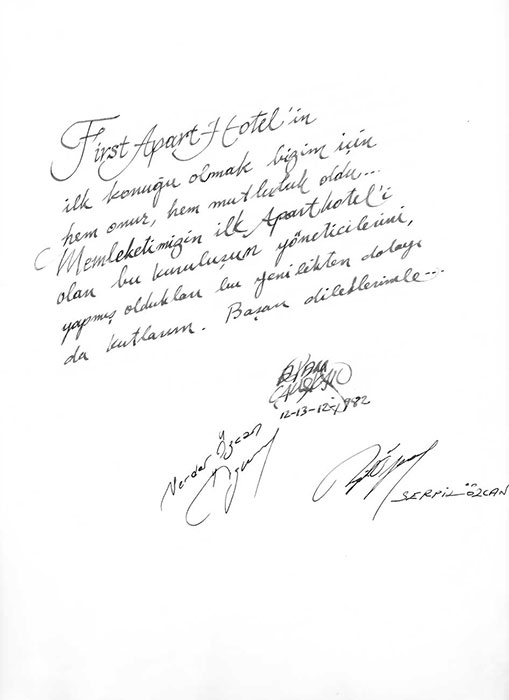 First Apart Hotel'in
ilk konuğu olmak bizim için
hem onur, hem mutluluk oldu...
Memleketimizin ilk Aparthotel'i
olan bu kuruluşun yöneticilerini,
yapmış oldukları bu yenilikten dolayı
da kutlarım. Başarı dileklerimle...
12-13-12-1982
Özcan
SERPİL ÖZCAN